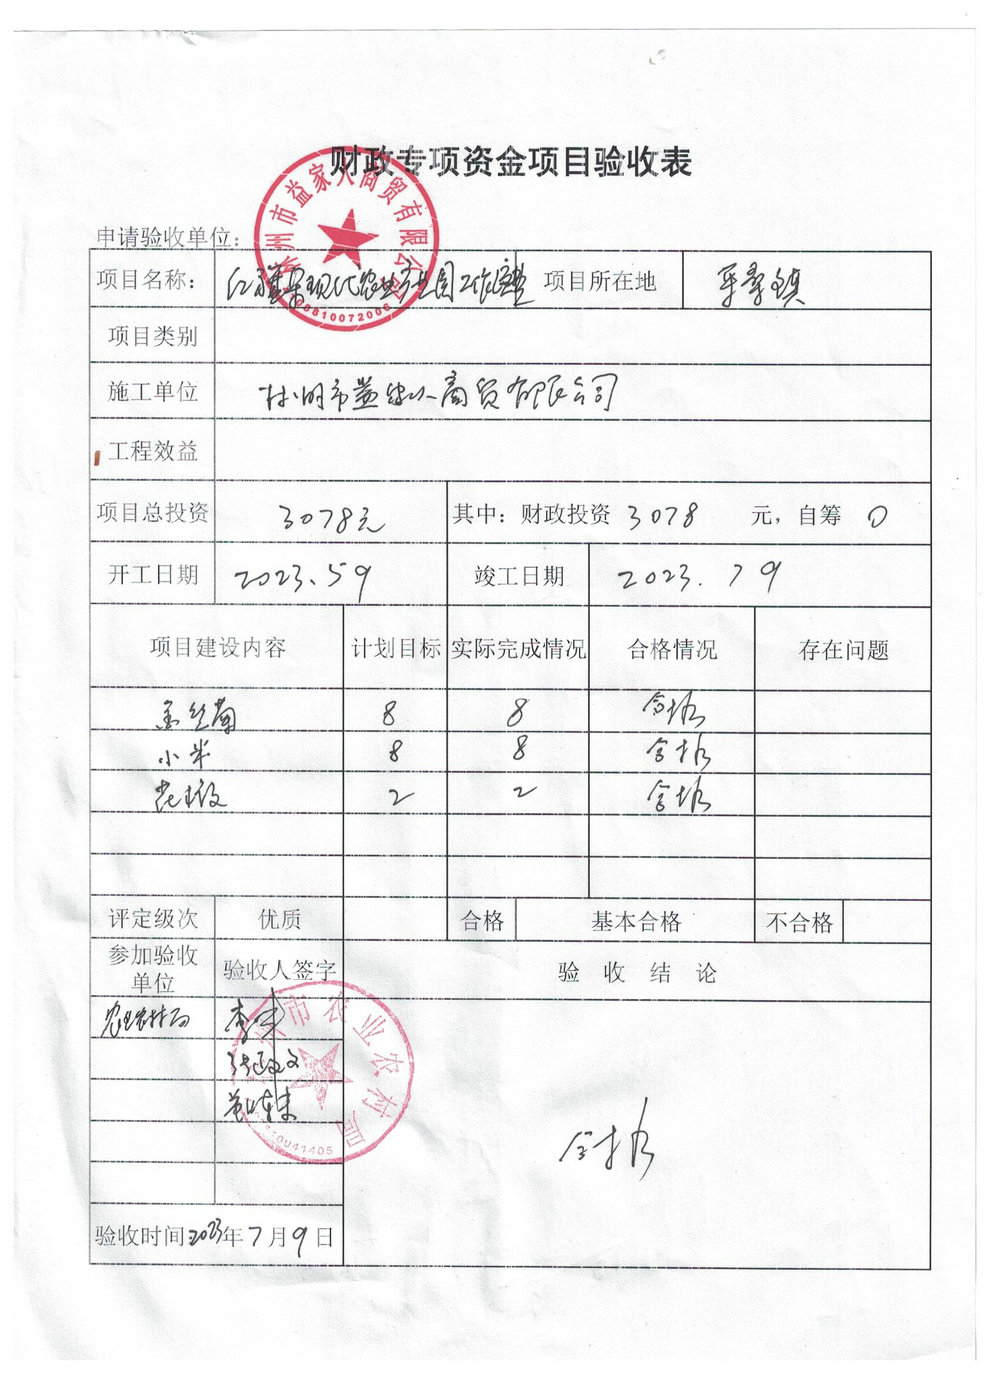 财政专项资金项目验收表
市益家人商贸有限公司
申请验收单位:
项目名称: 现代农业产业园工作 项目所在地
项目类别
施工单位 市益家人商贸有限公司
工程效益
项目总投资 3078元 其中: 财政投资 3078 元, 自筹 0
开工日期 2023.5 9 竣工日期 2023.7 9
项目建设内容 计划目标 实际完成情况 合格情况 存在问题
8 8 合格
小米 8 8 合格
2 2 合格
评定级次 优质 合格 基本合格 不合格
参加验收单位 验收人签字 验 收 结 论
农业农村局
市农业农村局
合格
验收时间2023年7月9日